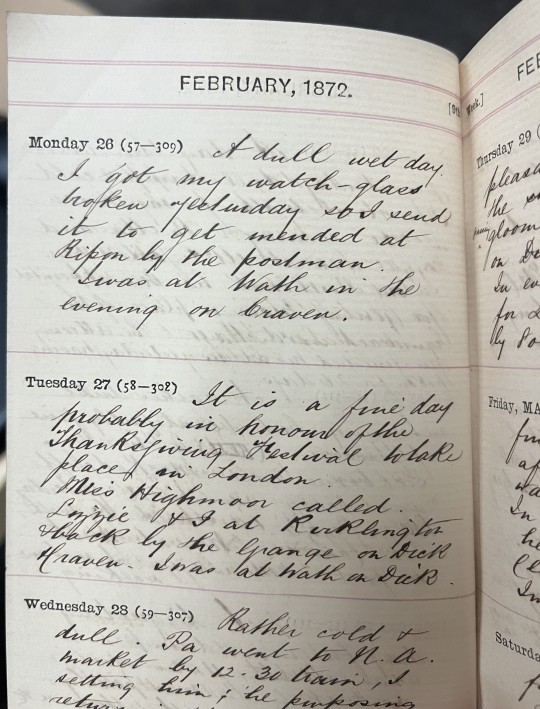 FEBRUARY, 1872.
Monday 26 (57—309) A dull wet day.
I got my watch-glass
broken yesturday so I send
it to get mended at
Ripon by the postman.
I was at Wath in the
evening on Craven.
Tuesday 27 (58—308) It is a fine day
probably in honour of the
Thanksgiving Festival to take
place in London.
Miss Highmoor called.
Lizzie & I at Kirklington
& back by the Grange on Dick
& Craven. I was at Wath on Dick.
Wednesday 28 (59—307) Rather cold &
dull. Pa went to N. A.
market by 12.30 train, I
setting him; he purposing
[9th Week.]
Thursday 29
the
on
In
for
by
Friday, MA
In
Saturda